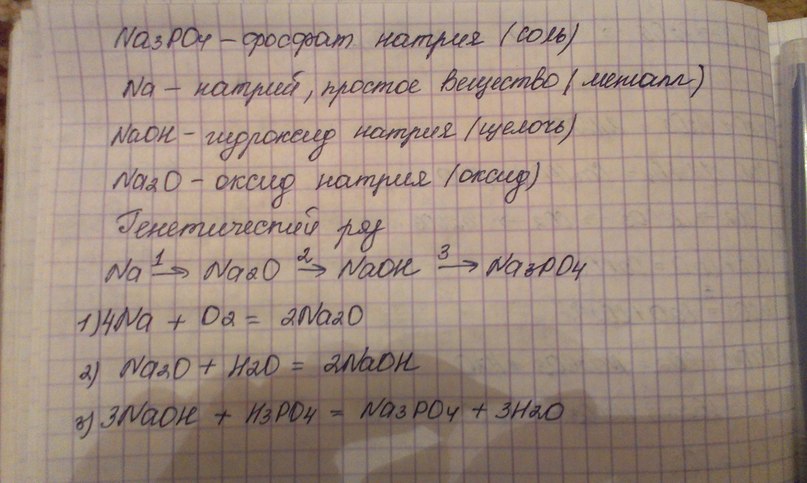 Na3PO4 – фосфат натрия (соль)
Na – натрий, простое вещество (металл)
NaOH – гидроксид натрия (щелочь)
Na2O – оксид натрия (оксид)
Генетический ряд
Na 1→ Na2O 2→ NaOH 3→ Na3PO4
1) 4Na + O2 = 2Na2O
2) Na2O + H2O = 2NaOH
3) 3NaOH + H3PO4 = Na3PO4 + 3H2O